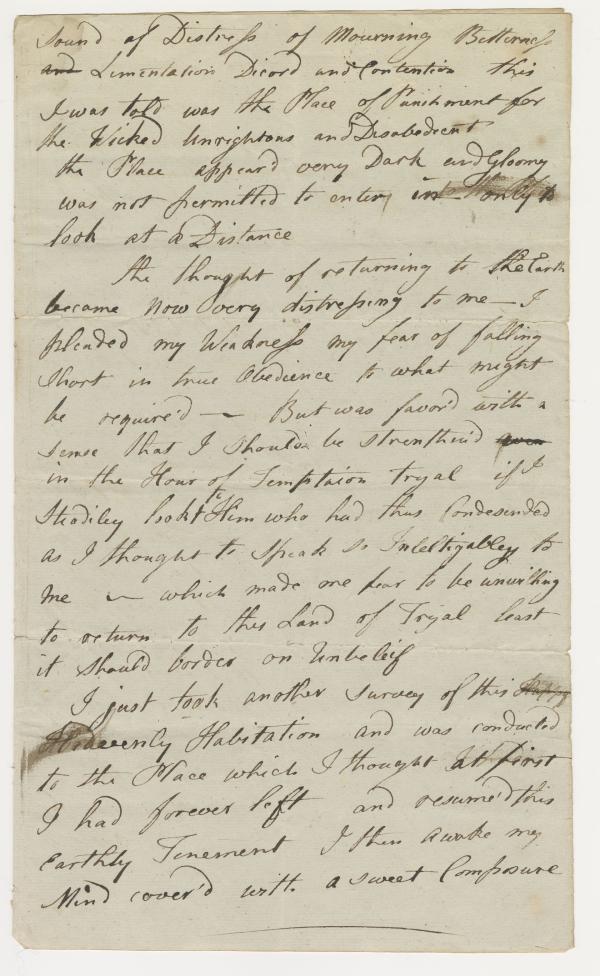 Sound of Distress of Mourning Bitterness
and Limentation Dicord and Contention this
I was told was the Place of Punishment for
the Wicked Unrightous and Disobedient
the Place appear'd very Dark and Gloomy
was not permitted to enter in only to
look at a Distance
the thought of returning to the Earth
became now very distressing to me — I
pleaded my Weakness my fear of falling
short in true Obedience to what might
be requir'd — But was favor'd with a
sense that I should be strenthin'd
in the Hour of Temptaion tryal if I
Stediley lookt to Him who had thus Condesended
as I thought to speak so Inteltigabley to
me — which made me fear to be unwilling
to return to this Land of Tryal least
it should border on Unbeleif
I just took another survey of this Happy
Heavenly Habitation and was conducted
to the Place which I thought at first
I had forever left and resumed this
Earthly Tinement I then awoke my
Mind cover'd with a sweet Composure